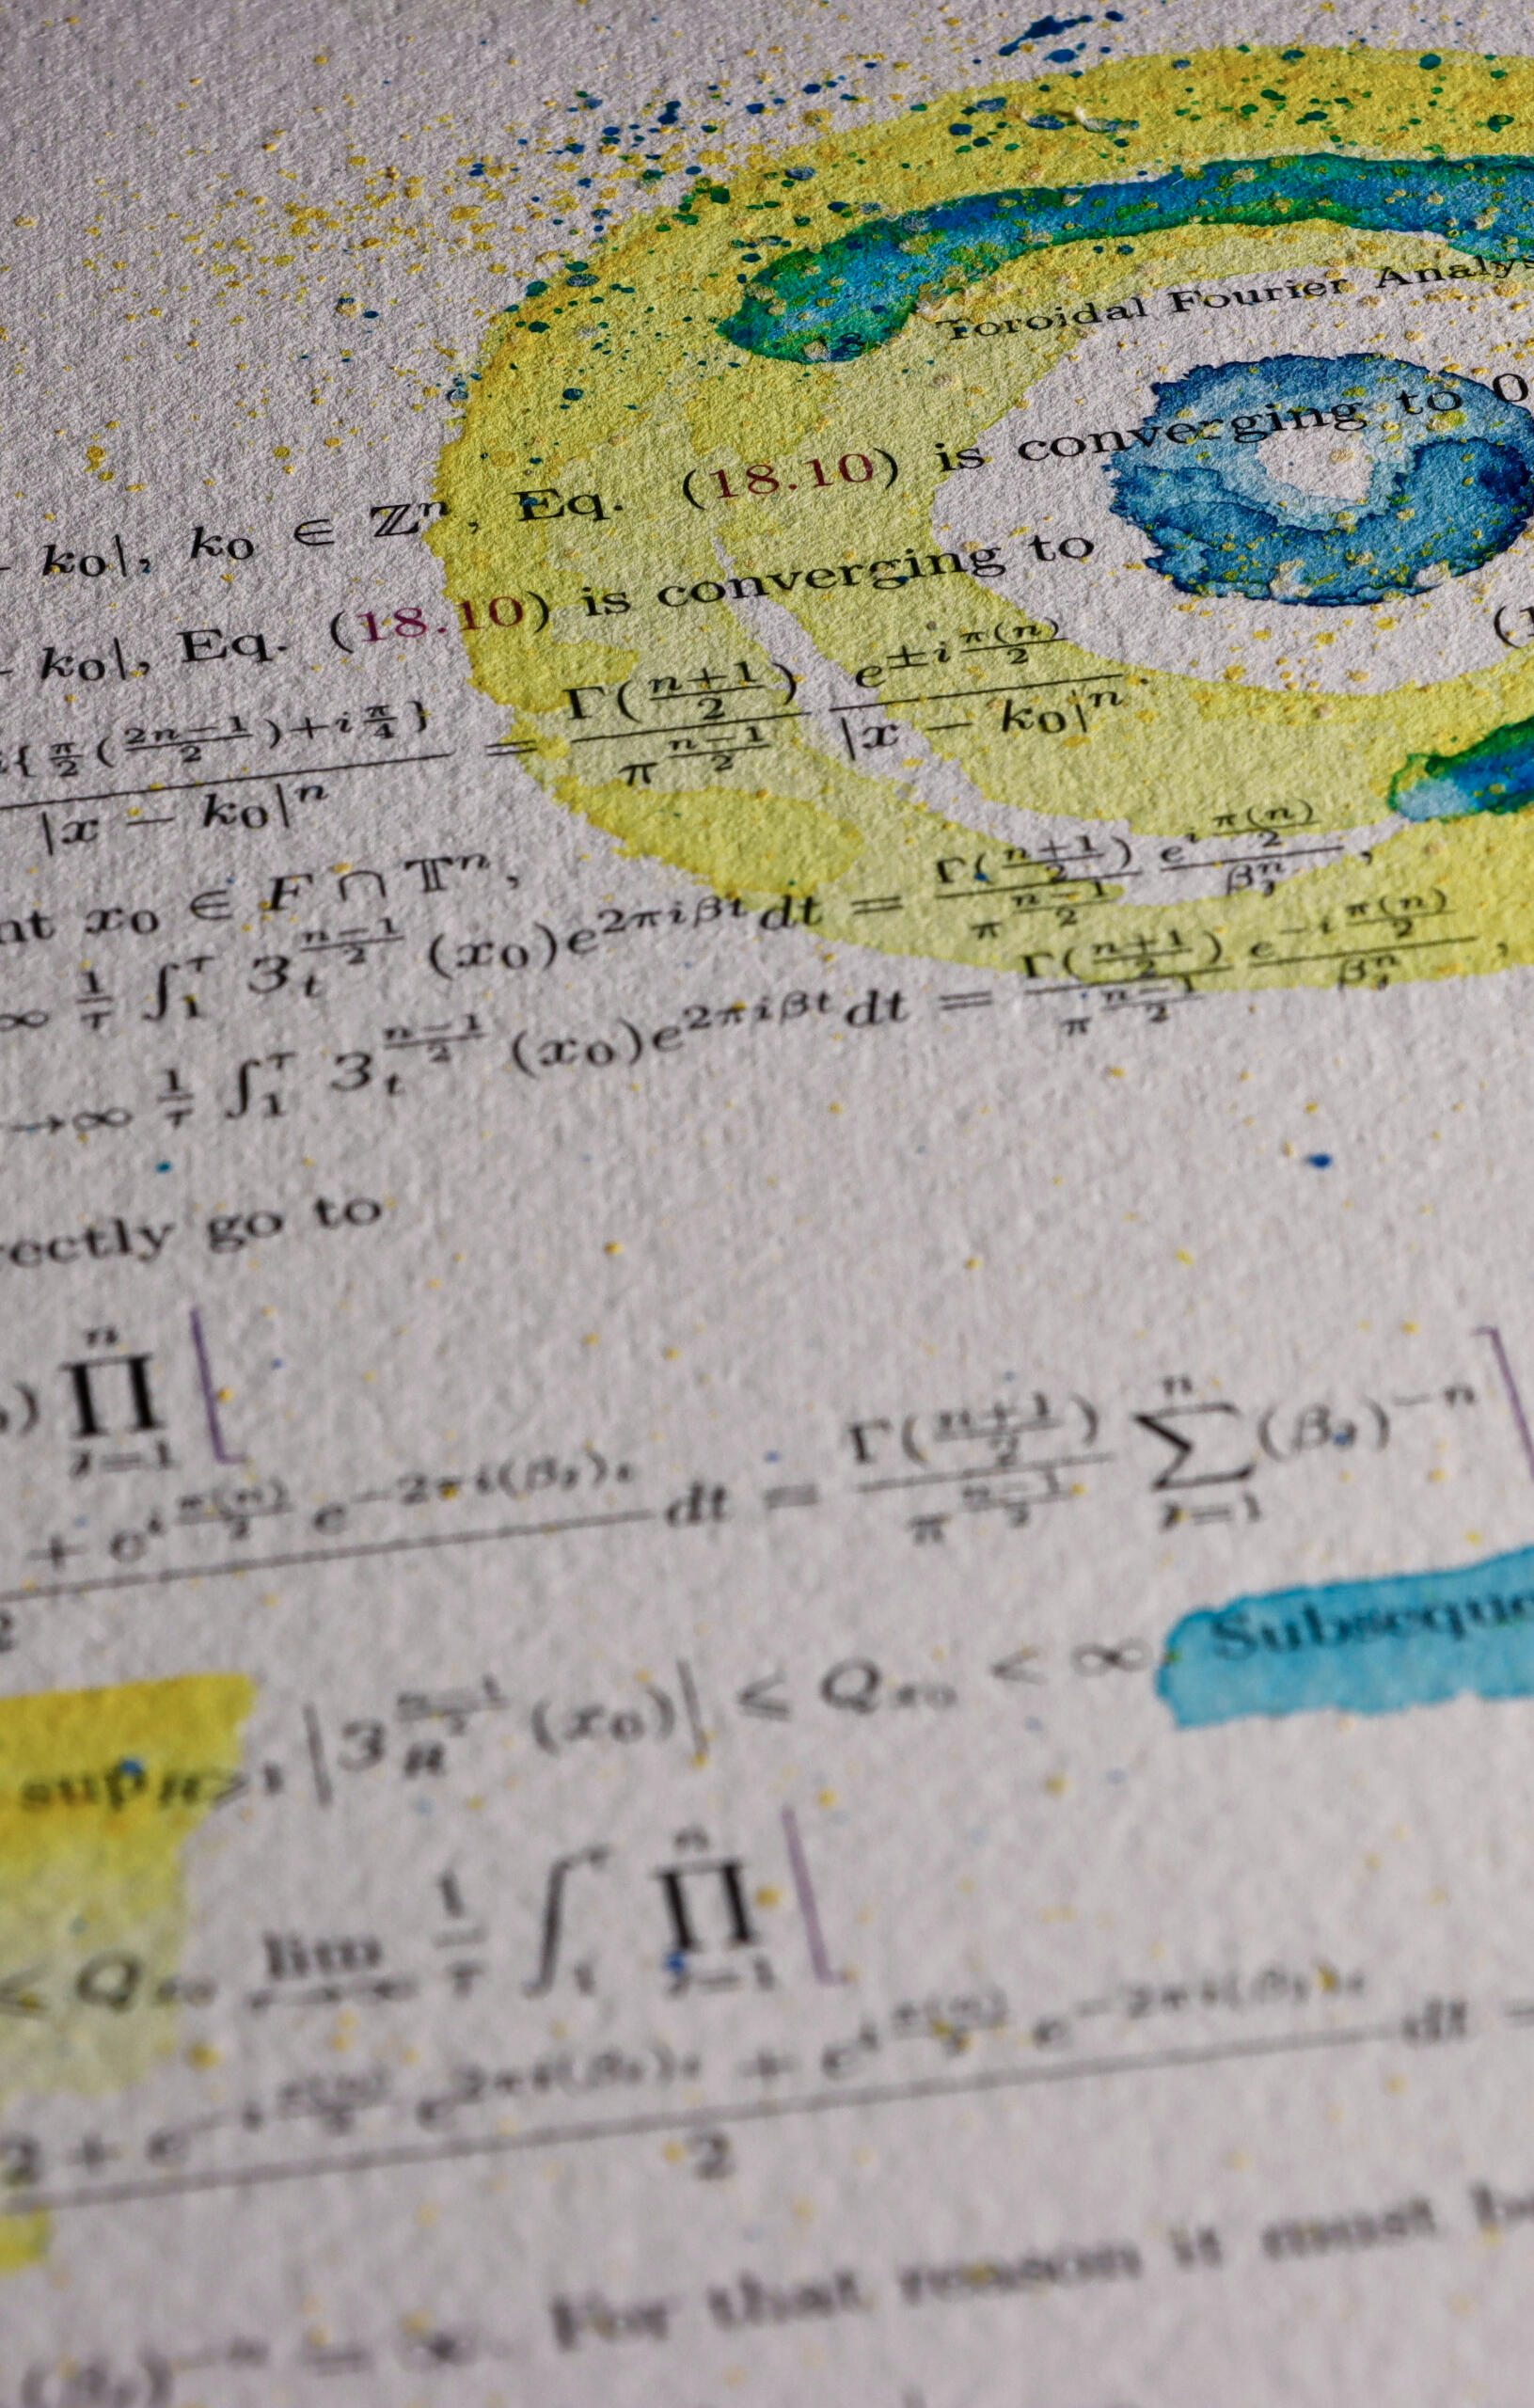 Toroidal Fourier Analys
k₀|, k₀ ∈ ℤⁿ, Eq. (18.10) is converging to 0
k₀|, Eq. (18.10) is converging to
{π/2((2n−1)/2)+iπ/4} / |x − k₀|ⁿ = Γ((n+1)/2) / π^((n−1)/2) e^(±i π(n)/2) / |x − k₀|ⁿ.
nt x₀ ∈ F ∩ 𝕋ⁿ,
∞ 1/τ ∫₁^τ 3_t^((n−1)/2) (x₀)e^(2πiβt) dt = Γ((n+1)/2) / π^((n−1)/2) e^(i π(n)/2) / β_j^n,
→∞ 1/τ ∫₁^τ 3_t^((n−1)/2) (x₀)e^(2πiβt) dt = Γ((n+1)/2) / π^((n−1)/2) e^(−i π(n)/2) / β_j^n,
rectly go to
) ∏_(j=1)^n [
+ e^(i π(n)/2) e^(−2πi(β_j)t) dt = Γ((n+1)/2) / π^((n−1)/2) ∑_(j=1)^n (β_j)^(−n) ]
2
sup_(R>1) |3_R^((n−1)/2) (x₀)| < Q_(x₀) < ∞. Subseque
< Q_(x₀) lim_(τ→∞) 1/τ ∫₁^τ ∏_(j=1)^n [
2 + e^(−i π(n)/2) e^(2πi(β_j)t) + e^(i π(n)/2) e^(−2πi(β_j)t) dt
2
(β_j)^(−n) = ∞. For that reason it must be